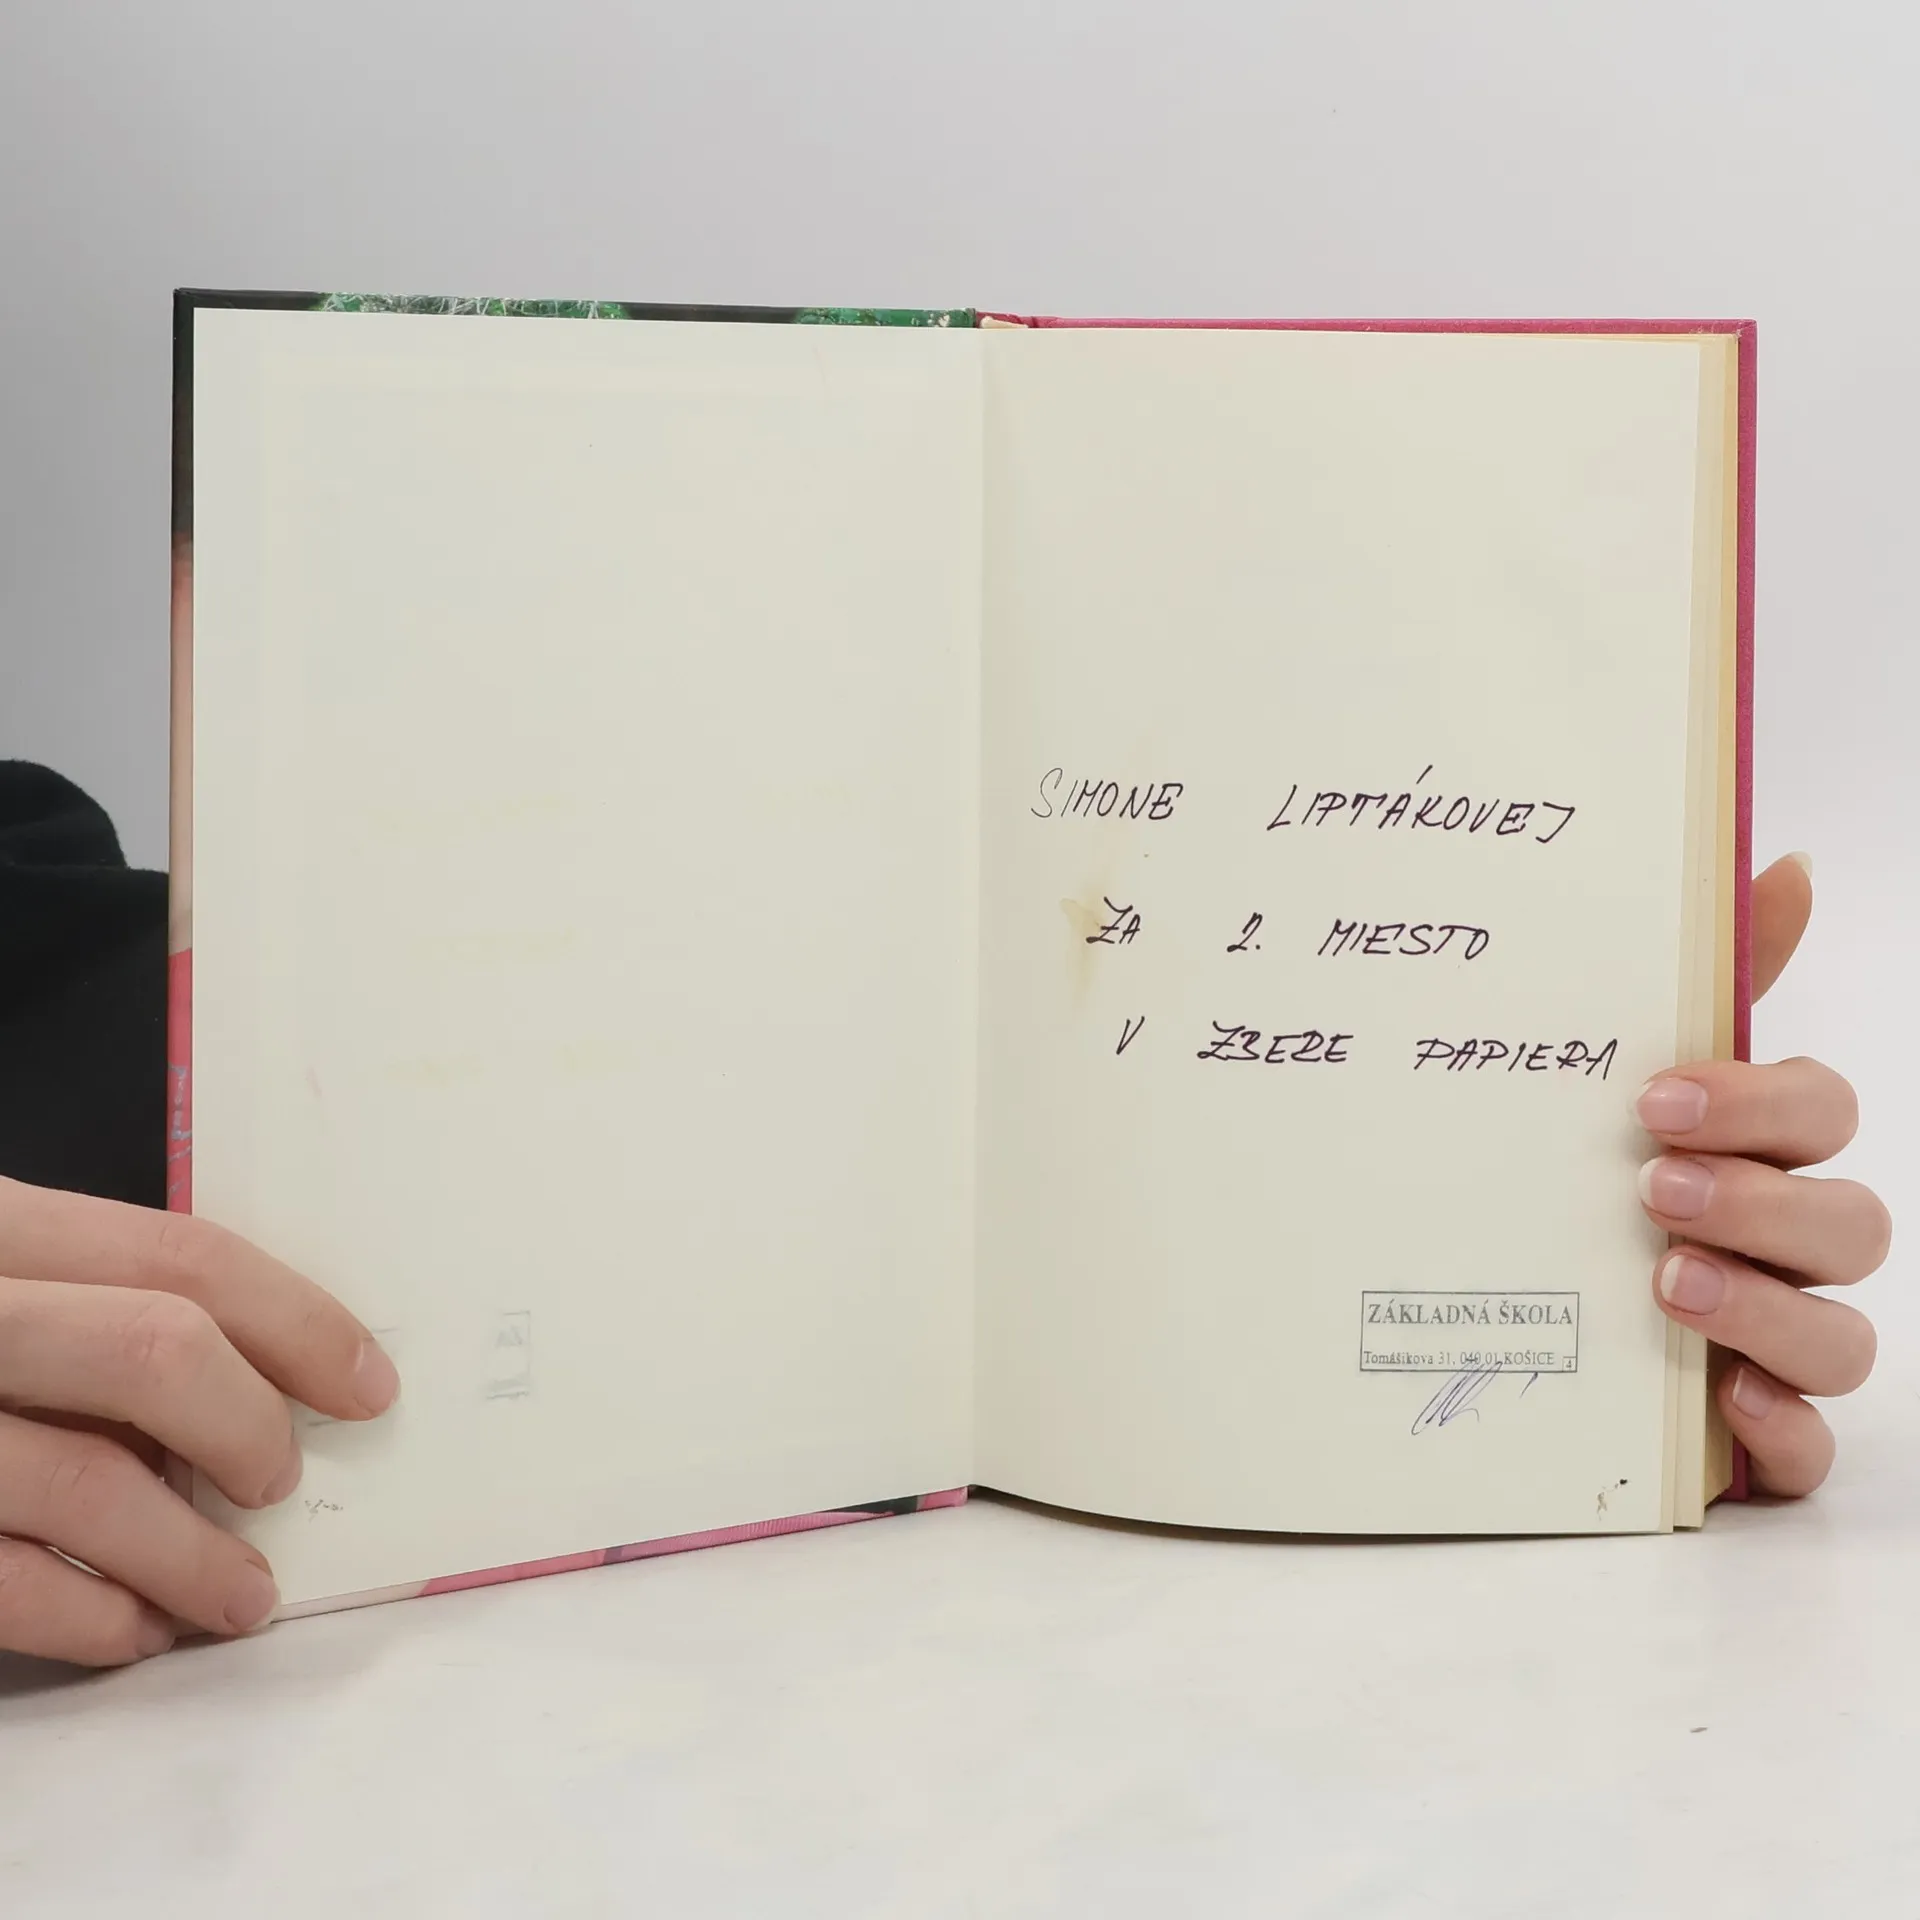 SIMONE LIPTÁKOVEJ
ZA 2. MIESTO
V ZBERE PAPIERA
ZÁKLADNÁ ŠKOLA
Tomášikova 31, 040 01 KOŠICE 4